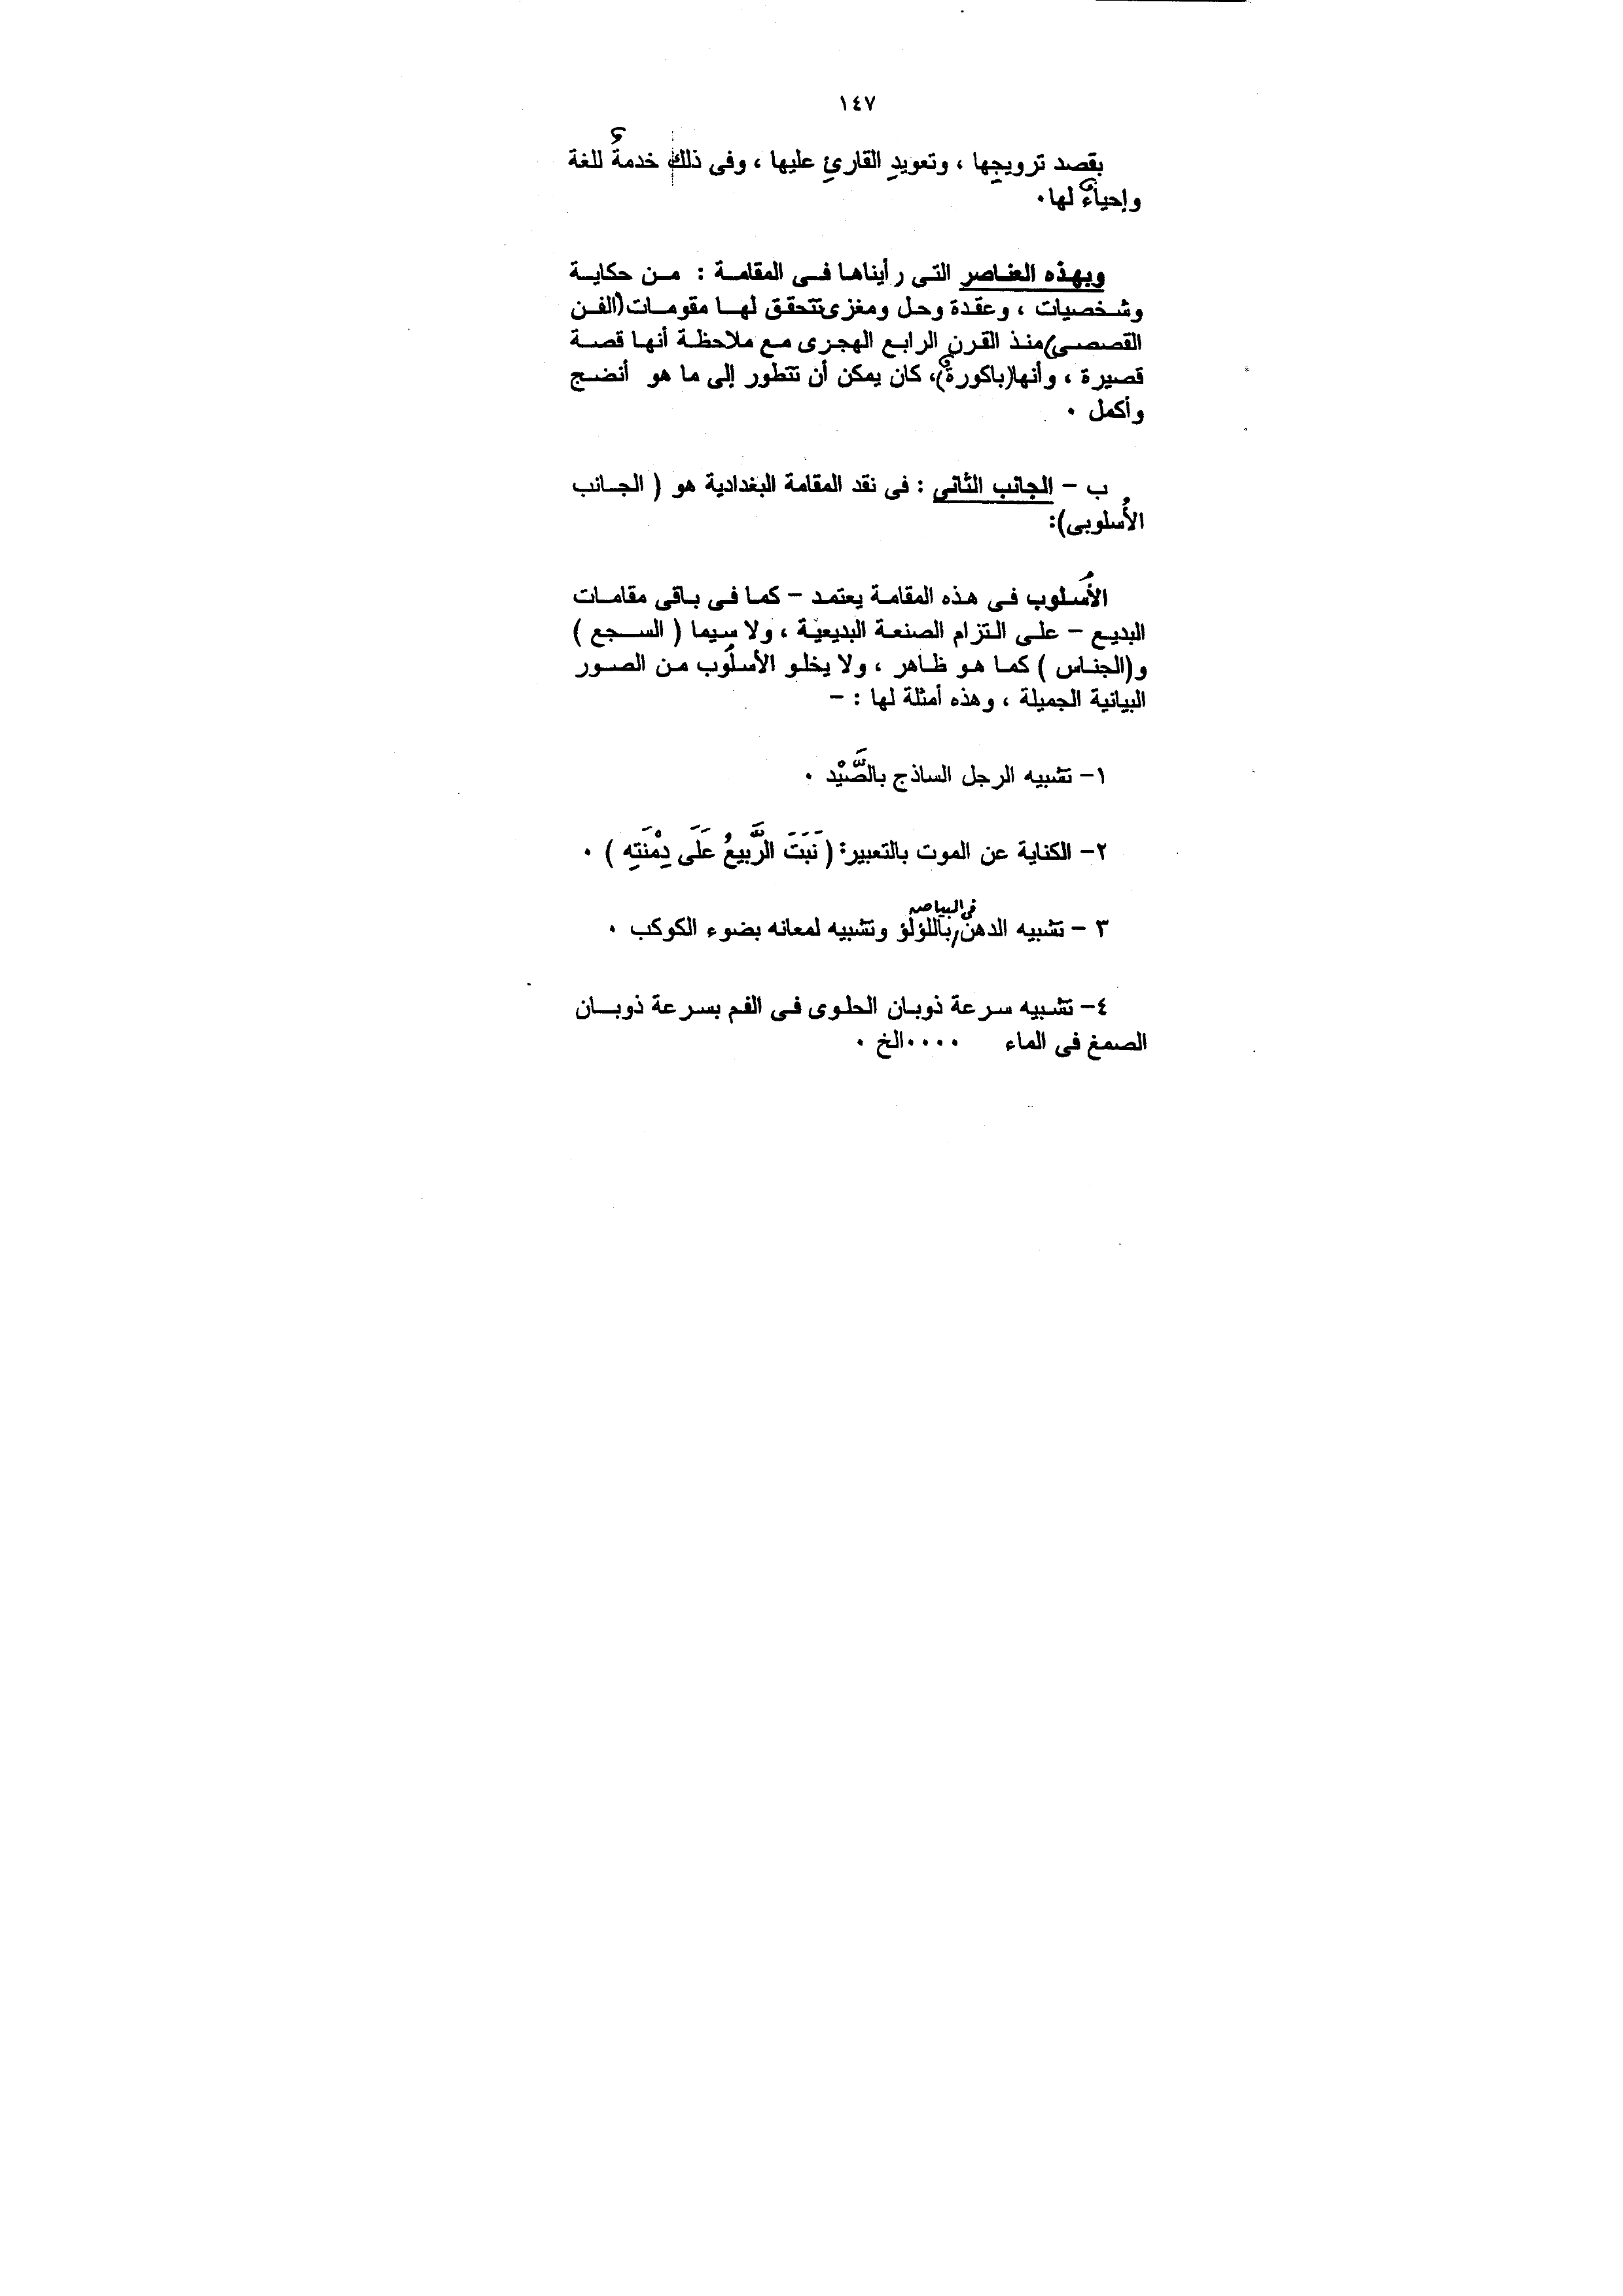 ١٤٧
بقصد ترويجها ، وتعويدِ القارئِ عليها ، وفى ذلك خدمةٌ للغة
وإحياءٌ لها٠
وبهذه العناصر التى رأيناها فى المقامة : من حكاية
وشخصيات ، وعقدة وحل ومغزى تتحقق لها مقومات (الفن
القصصى) منذ القرن الرابع الهجرى مع ملاحظة أنها قصة
قصيرة ، وأنها (باكورةٌ)، كان يمكن أن تتطور إلى ما هو أنضج
وأكمل ٠
ب - الجانب الثانى : فى نقد المقامة البغدادية هو ( الجانب
الأُسلوبى):
الأُسلوب فى هذه المقامة يعتمد - كما فى باقى مقامات
البديع - على التزام الصنعة البديعية ، ولا سيما ( السجع )
و(الجناس ) كما هو ظاهر ، ولا يخلو الأسلُوب من الصور
البيانية الجميلة ، وهذه أمثلة لها : -
١- تشبيه الرجل الساذج بالصَّيْد ٠
٢- الكناية عن الموت بالتعبير: ( نَبَتَ الرَّبيعُ عَلَى دِمْنَتِه ) ٠
٣ - تشبيه الدهن فى البياض باللؤلؤ وتشبيه لمعانه بضوء الكوكب ٠
٤- تشبيه سرعة ذوبان الحلوى فى الفم بسرعة ذوبان
الصمغ فى الماء ٠٠٠٠الخ ٠